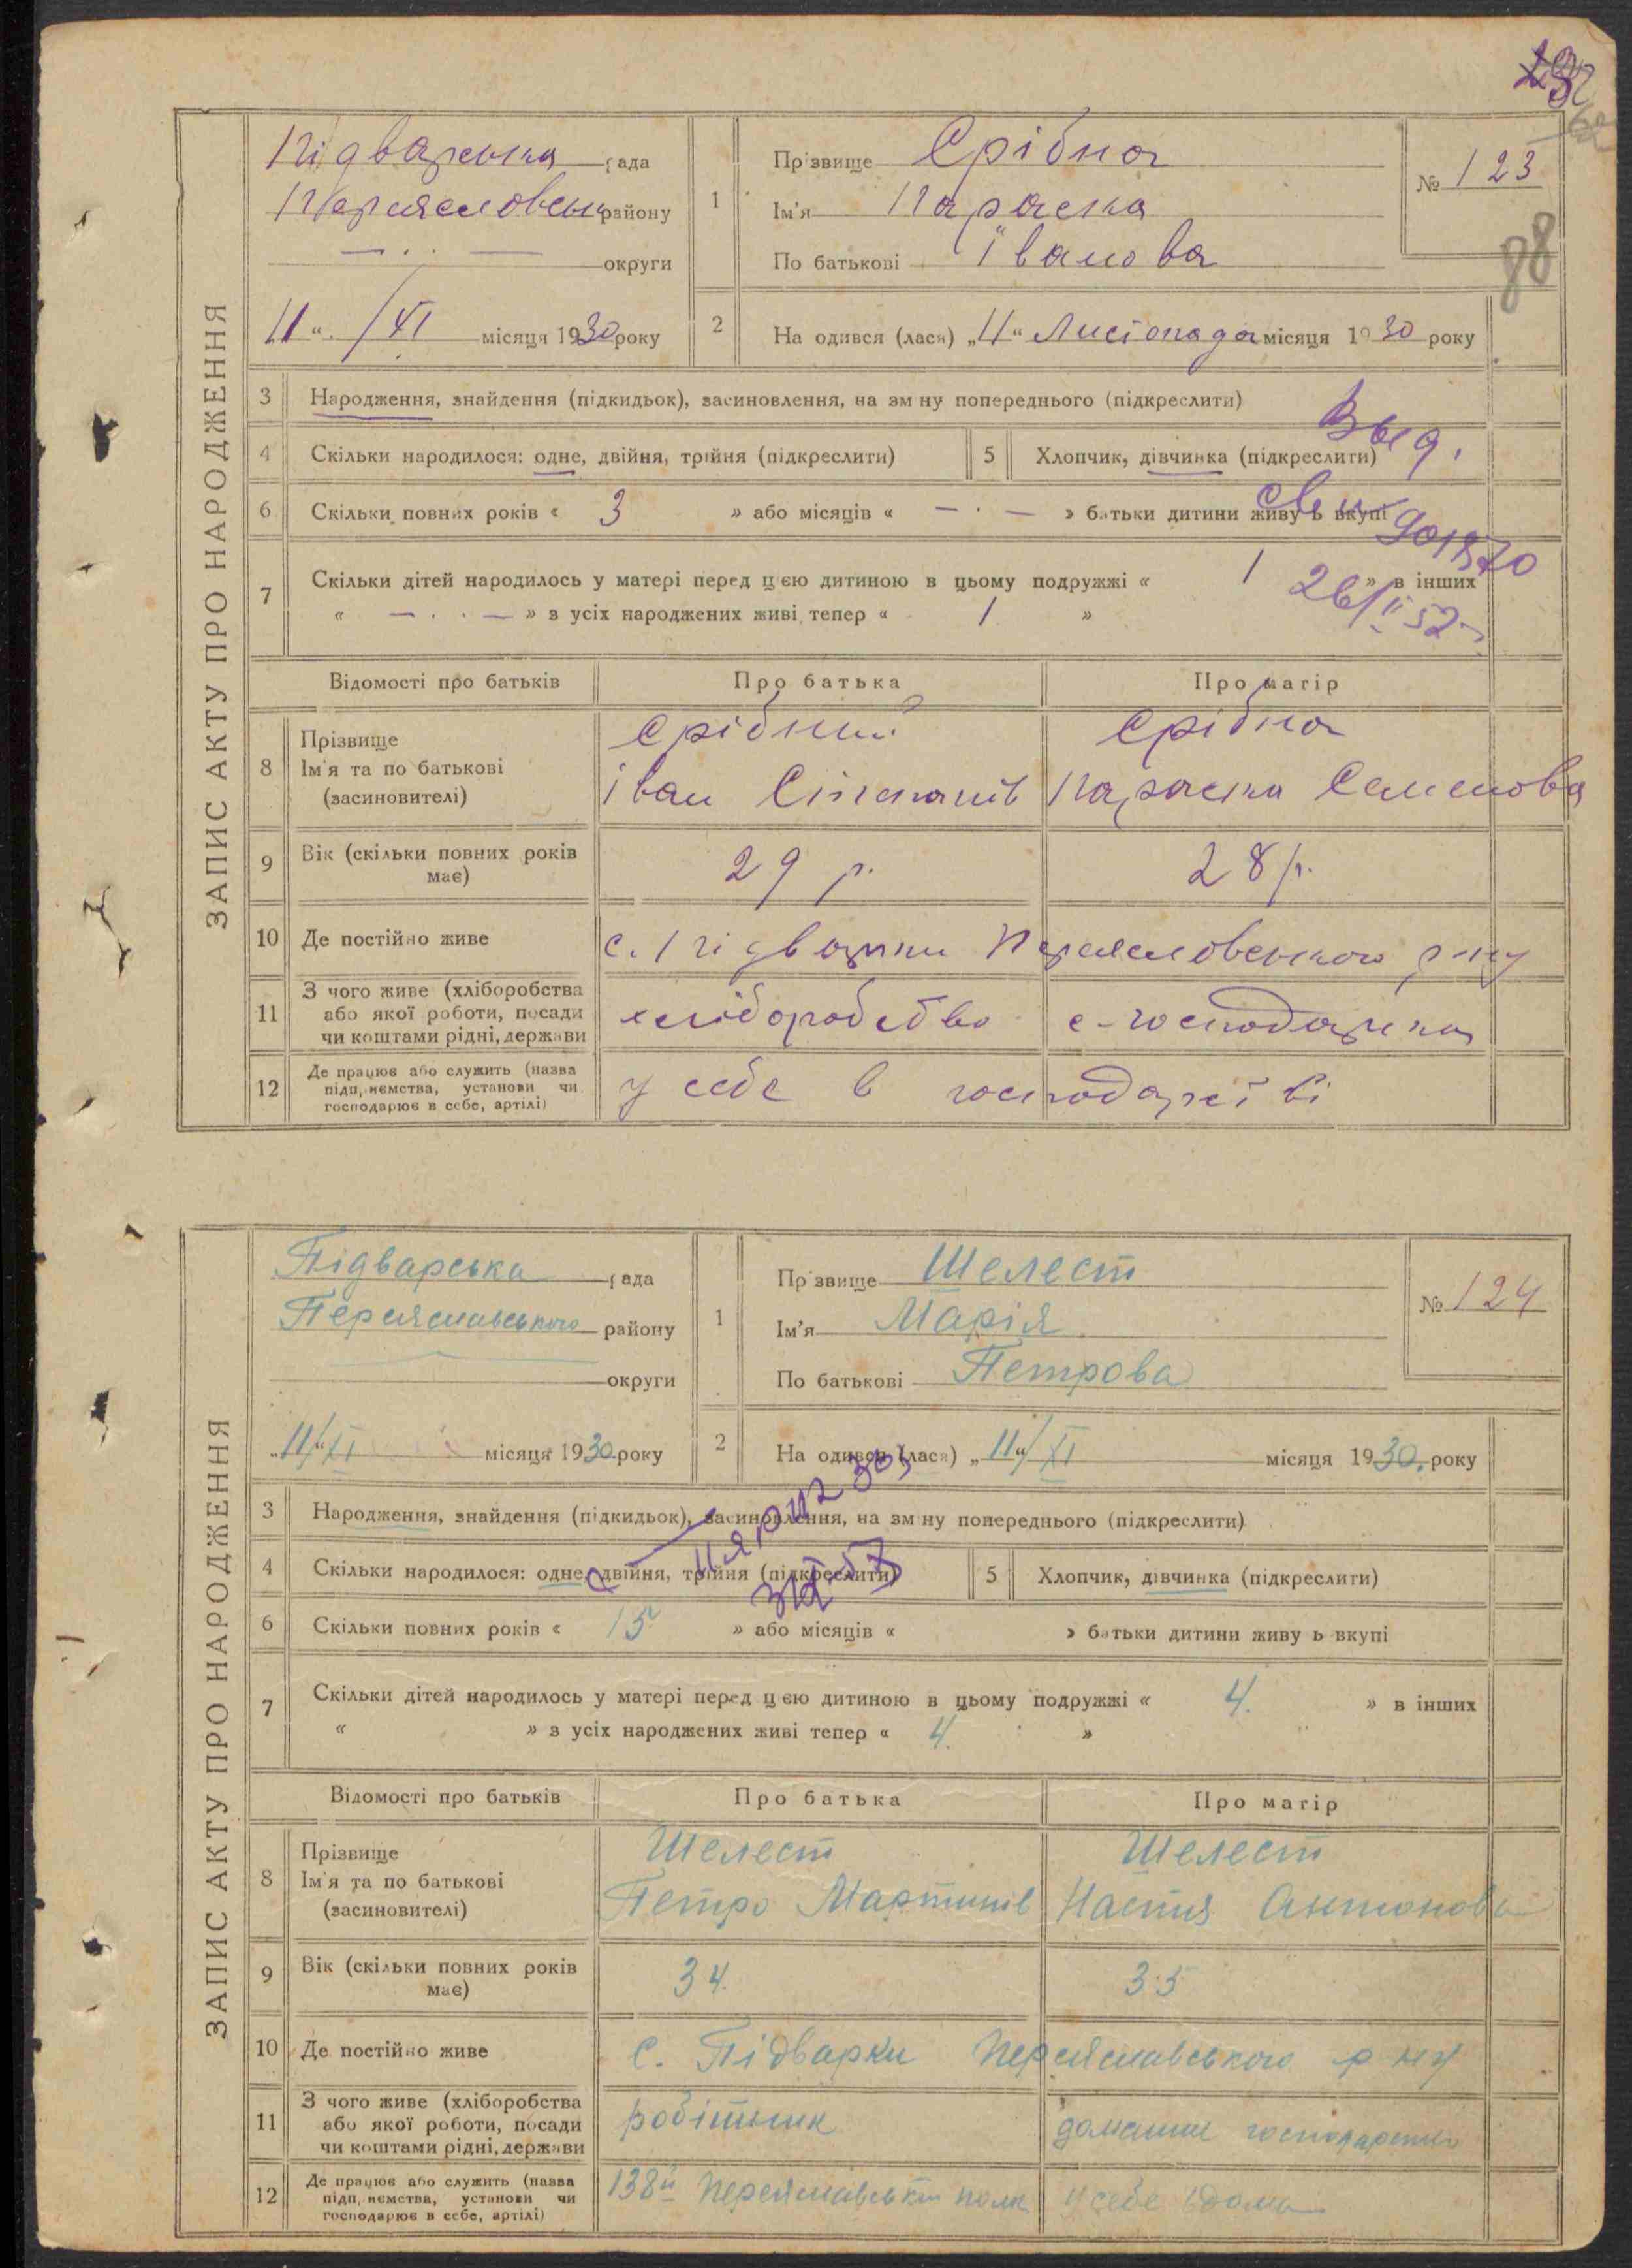 ЗАПИС АКТУ ПРО НАРОДЖЕННЯ
Підварська рада
Переяславськ району
— · · — округи
11 “ / XI місяця 1930 року
1
Прізвище Срібна
Ім'я Параска
По батькові Іванова
№ 123
88
2
На одився (лася) „11“ Листопада місяця 1930 року
3 Народження, знайдення (підкидьок), засиновлення, на зм ну попереднього (підкреслити)
Выд.
4 Скільки народилося: одне, двійня, трійня (підкреслити)
5 Хлопчик, дівчинка (підкреслити)
6 Скільки повних років « 3 » або місяців « — · — » батьки дитини живу ь вкупі
7 Скільки дітей народилось у матері перед цією дитиною в цьому подружжі « 1 » в інших
« — · · — » з усіх народжених живі тепер « 1 »
26/II 52
Відомості про батьків Про батька Про матір
8 Прізвище
Ім'я та по батькові
(засиновителі)
Срібний
Іван Степанів
Срібна
Параска Семенова
9 Вік (скільки повних років
має)
29 р.
28 р.
10 Де постійно живе
с. Підварки Переяславського р-ну
11 З чого живе (хліборобства
або якої роботи, посади
чи коштами рідні, держави
хліборобство
с-господарка
12 Де працює або служить (назва
підп, иємства, установи чи
господарює в себе, артілі)
у себе в господарстві
ЗАПИС АКТУ ПРО НАРОДЖЕННЯ
Підварська рада
Переяславського району
округи
„11/“ XI місяця 1930 року
1
Прізвище Шелест
Ім'я Марія
По батькові Петрова
№ 124
2
На одився (лася) „11“/XI місяця 1930. року
3 Народження, знайдення (підкидьок), засиновлення, на зм ну попереднього (підкреслити)
4 Скільки народилося: одне, двійня, трійня (підкреслити)
5 Хлопчик, дівчинка (підкреслити)
6 Скільки повних років « 15 » або місяців « » батьки дитини живу ь вкупі
7 Скільки дітей народилось у матері перед цією дитиною в цьому подружжі « 4. » в інших
« » з усіх народжених живі тепер « 4. »
Відомості про батьків Про батька Про матір
8 Прізвище
Ім'я та по батькові
(засиновителі)
Шелест
Петро Мартинів
Шелест
Настя Антонова
9 Вік (скільки повних років
має)
34.
35
10 Де постійно живе
с. Підварки Переяславського р-ну
11 З чого живе (хліборобства
або якої роботи, посади
чи коштами рідні, держави
робітник
домашнє господарство
12 Де працює або служить (назва
підп, иємства, установи чи
господарює в себе, артілі)
138й Переяславськ полк
у себе вдома